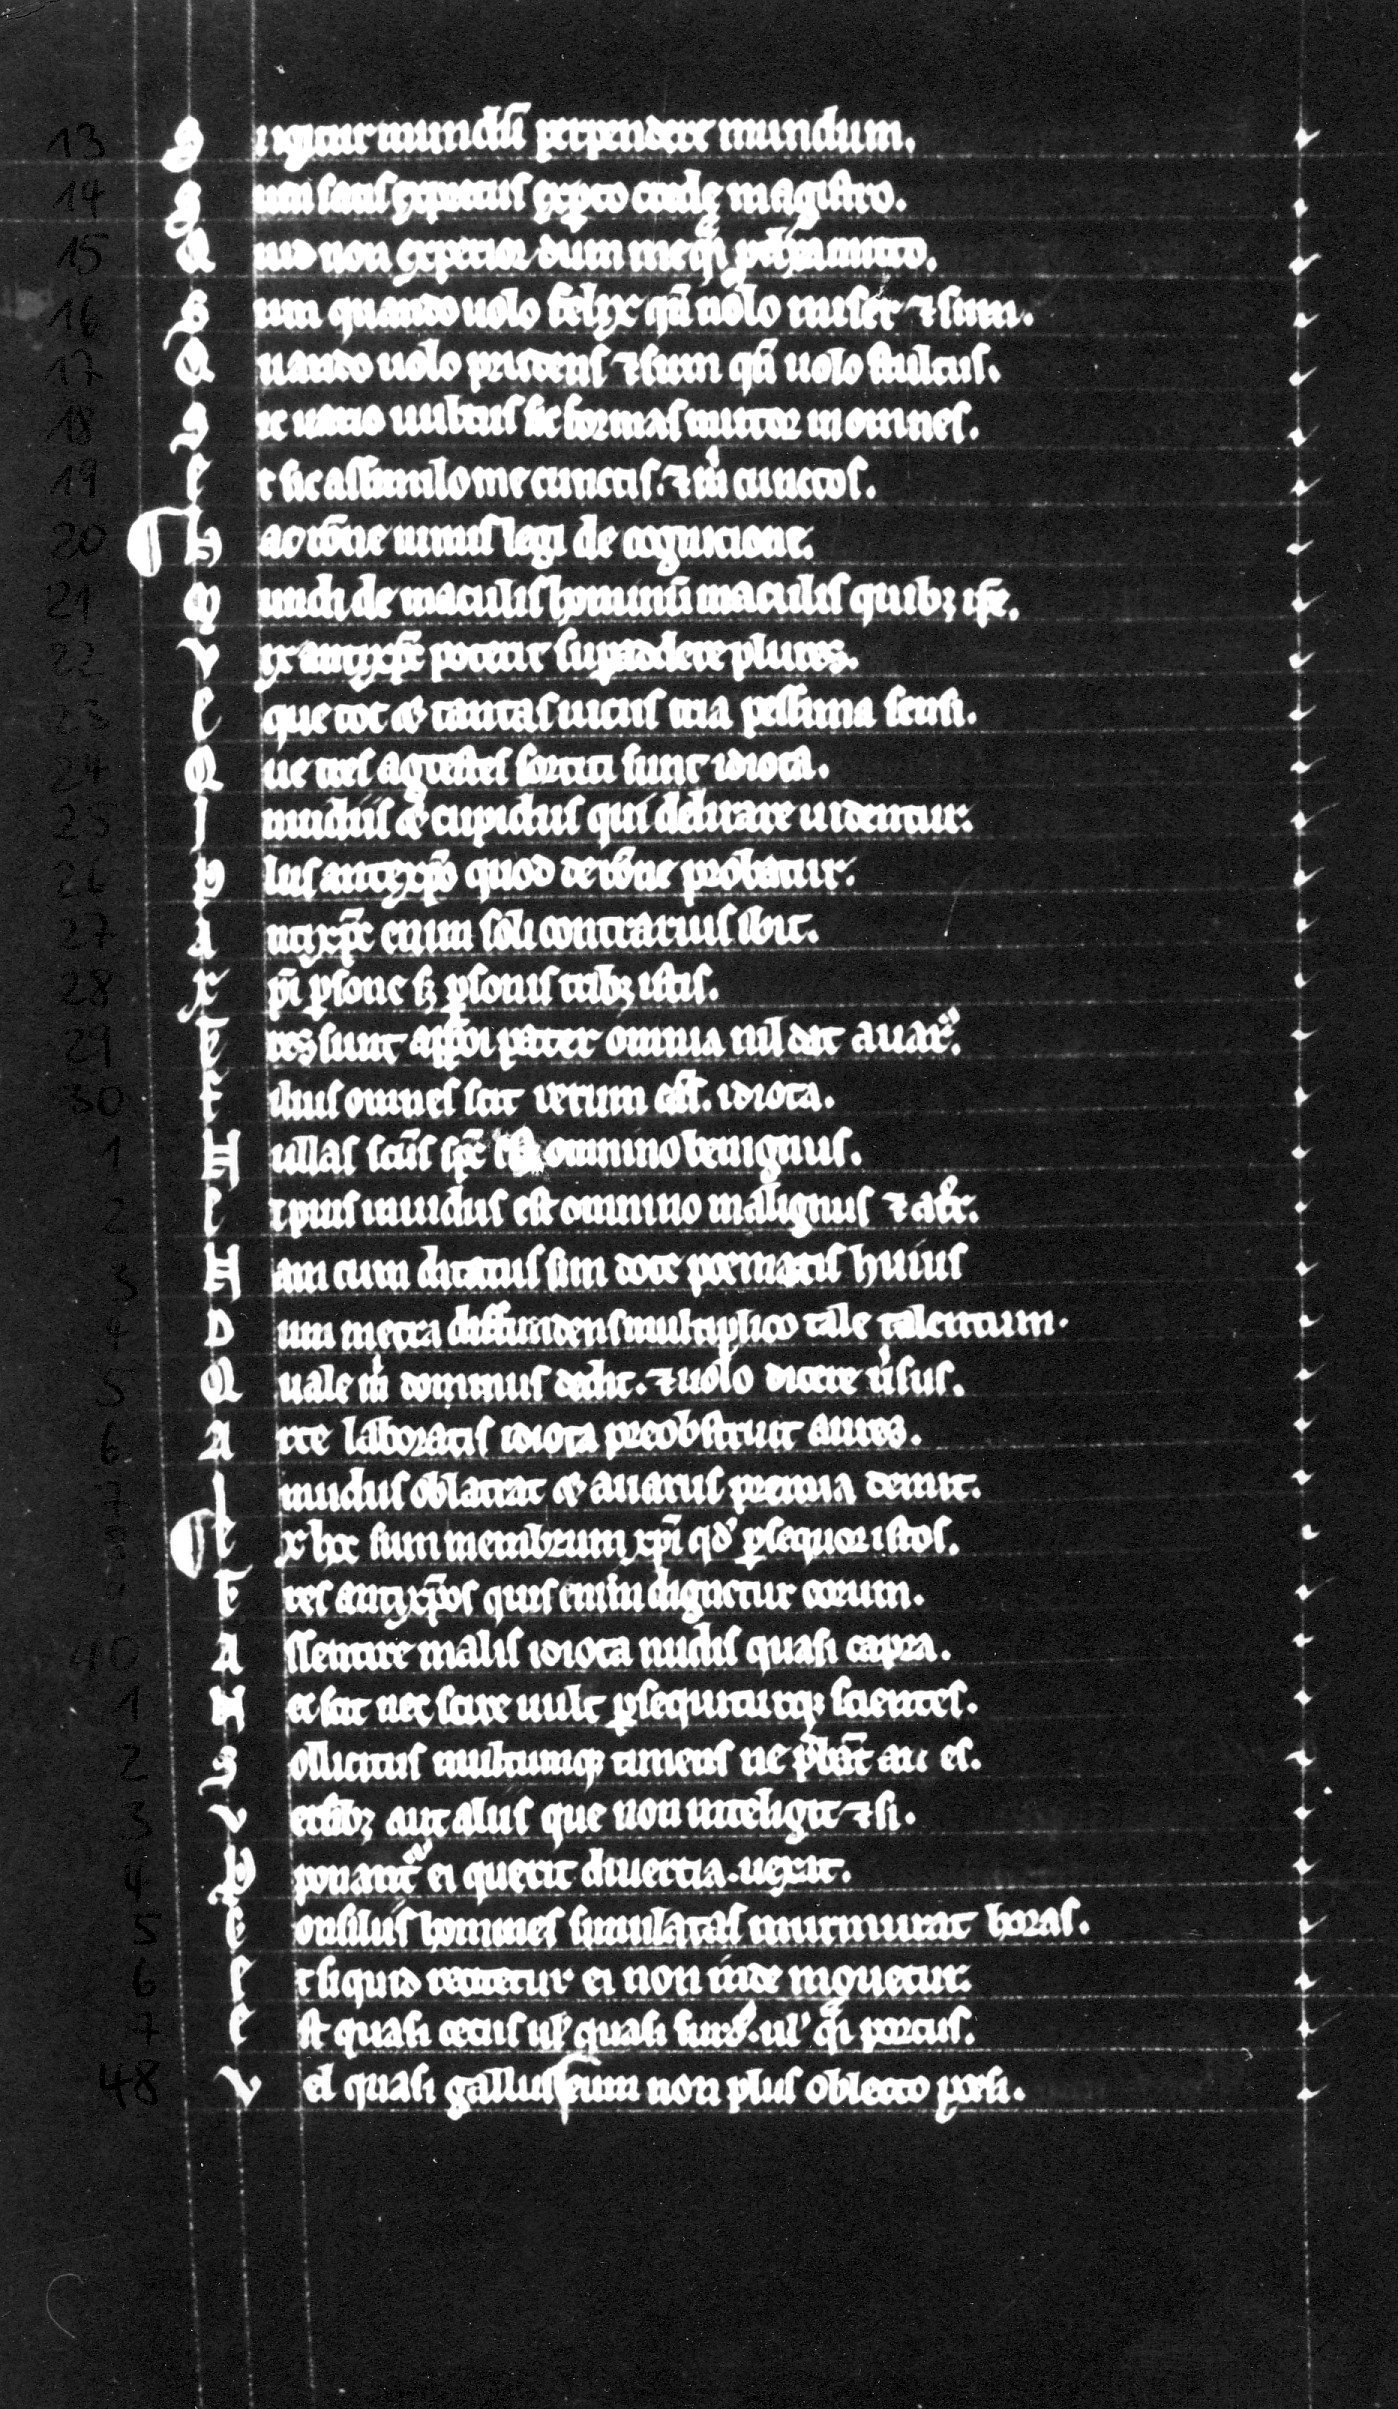 13 S igitur mundū perpendere mundum.
14 S um satis expertus exꝑto crede magistro.
15 Q uid non experior dum meqͥ
16 S um quando uolo felix qn̄ nolo miser ⁊ sum.
17 Q uando uolo prudens ⁊ sum qn̄ uolo stultus.
18 S ic uario uultus sic formas mutor in omnes.
19 E t sic assimilo me cunctis. ⁊ m̄ cunctos.
20 ¶ H ac rōne nimis legi de cognicione.
21 M undi de maculis hominū maculis quibꝫ ip̄e.
22 V ix antixp̄c poterit suꝑaddere plures.
23 E que tot & tantas uicus tria pessima sensi.
24 Q ue tres agrestes sortiti sunt idiota.
25 I nuidus & cupidus qui delirare uidentur.
26 P lus antixp̄o quod de rōne probatur.
27 A ntixp̄c enim soli contrarius ibit.
28 X pi ꝑsone sꝫ ꝑsonis tribꝫ istis.
29 T res sunt appoi pater omnia nil dat auarꝰ.
30 F ilius omnes scit uerum idiota.
1 N ullas scūs sp̄c omnino benignus.
2 E t pius inuidus est omnino malignus ⁊ at͛.
3 N am cum ditatus sim dote poematis huius
4 D um metra diffundens multiplico tale talentum.
5 Q uale m̄ dominus dedit. ⁊ uolo dicere u͛sus.
6 A rte laboratis idiota preobstruit aures.
7 I nuidus oblatrat & auarus premia demit.
8 ¶ E x hiic sum membrum xp̄i qd̕ ꝑsequor istos.
9 T res antixp̄os quis enim dignetur eorum.
40 A ssentire malis idiota rudis quasi capra.
1 N ec scit nec scire uult ꝑsequiturqꝫ scientes.
2 S ollicitus multumqꝫ timens ne au es.
3 V ersibꝫ aut aliis que non intelligit ⁊ si.
4 P ponant͛ ei querit diuertia. uexat.
5 C onsiliis homines simulatas murmurat horas.
6 E t si quid recitetur ei non inde mouetur.
7 E st quasi cecus ul̕ quasi surdꝰ. ul̕ qͣi porcus.
48 V el quasi gallus eum non plus oblecto poesi.